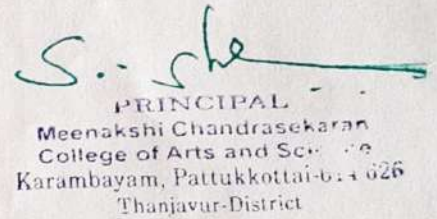 PRINCIPAL
Meenakshi Chandrasekaran
College of Arts and
Karambayam, Pattukkottai-
Thanjavur-District